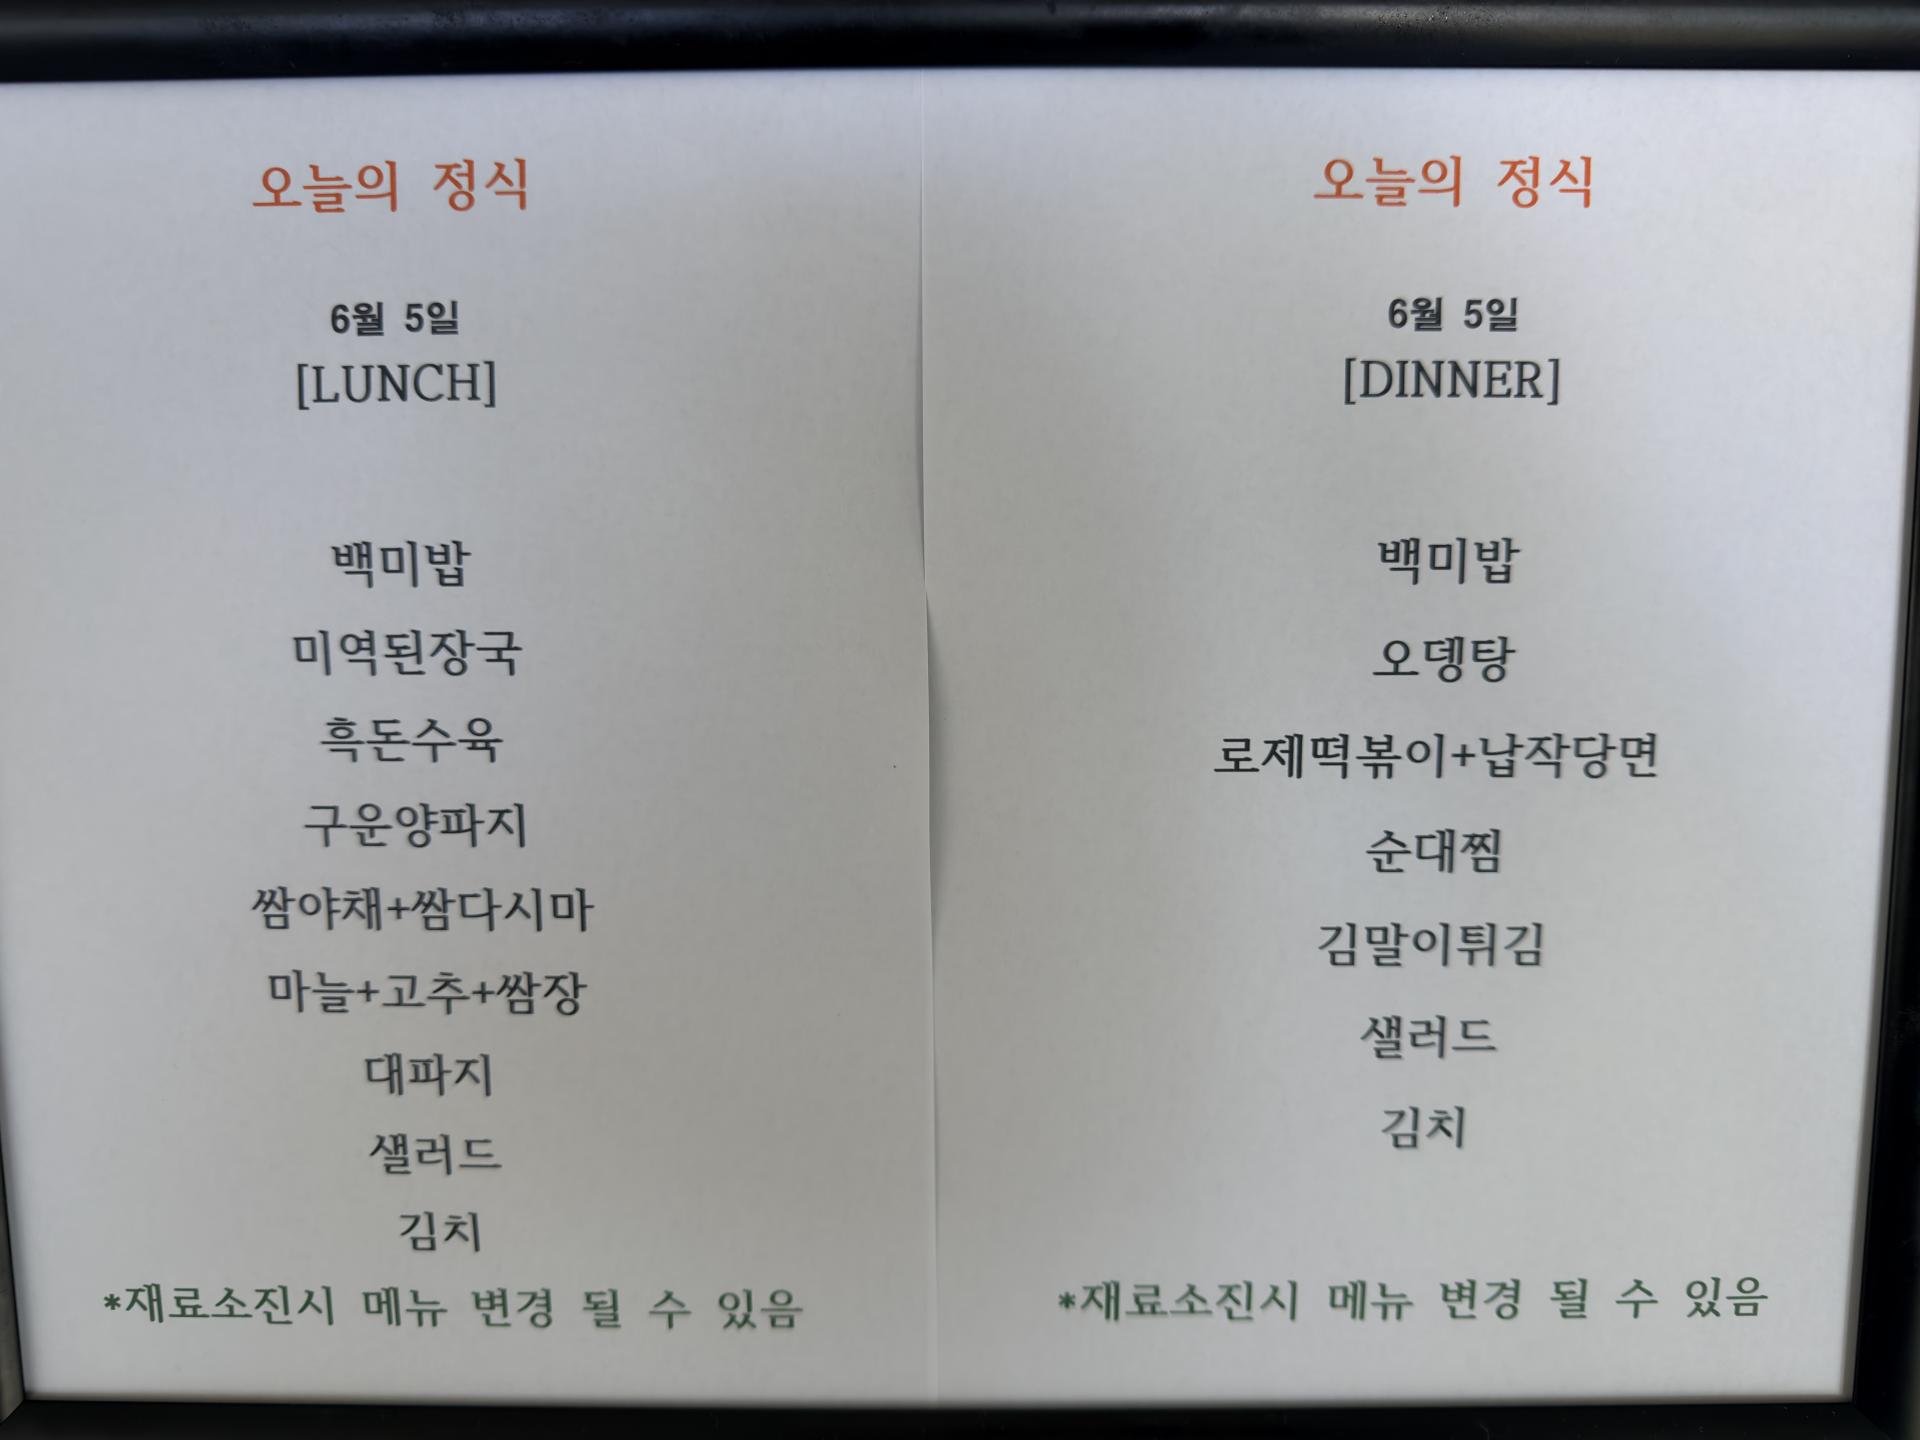 오늘의 정식
6월 5일
[LUNCH]
백미밥
미역된장국
흑돈수육
구운양파지
쌈야채+쌈다시마
마늘+고추+쌈장
대파지
샐러드
김치
*재료소진시 메뉴 변경 될 수 있음
오늘의 정식
6월 5일
[DINNER]
백미밥
오뎅탕
로제떡볶이+납작당면
순대찜
김말이튀김
샐러드
김치
*재료소진시 메뉴 변경 될 수 있음